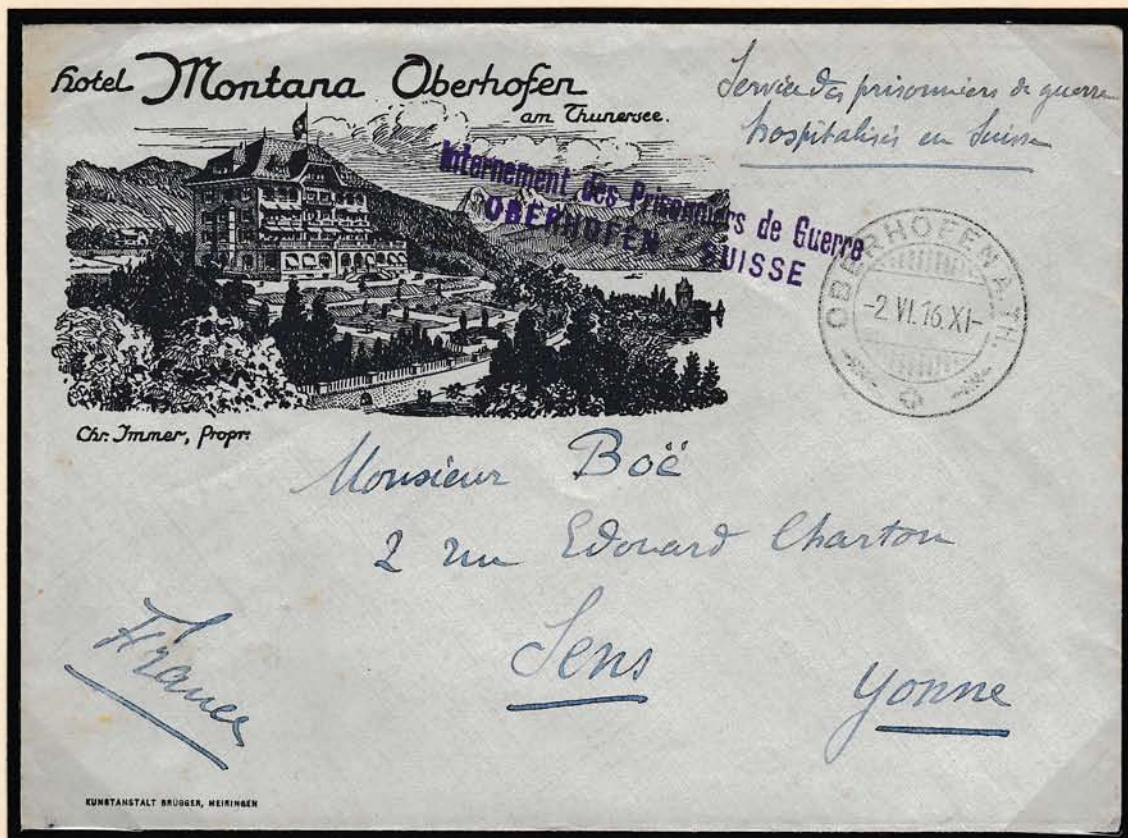 Hotel Montana Oberhofen
am Thunersee.
Service des prisonniers de guerre
hospitalisés en Suisse
Internement des Prisonniers de Guerre
OBERHOFEN - SUISSE
OBERHOFEN A. TH.
-2.VI.16.XI-
Chr. Immer, Propr.
Monsieur Boë
2 rue Edouard Charton
Sens
Yonne
France
KUNSTANSTALT BRÜGGER, MEIRINGEN